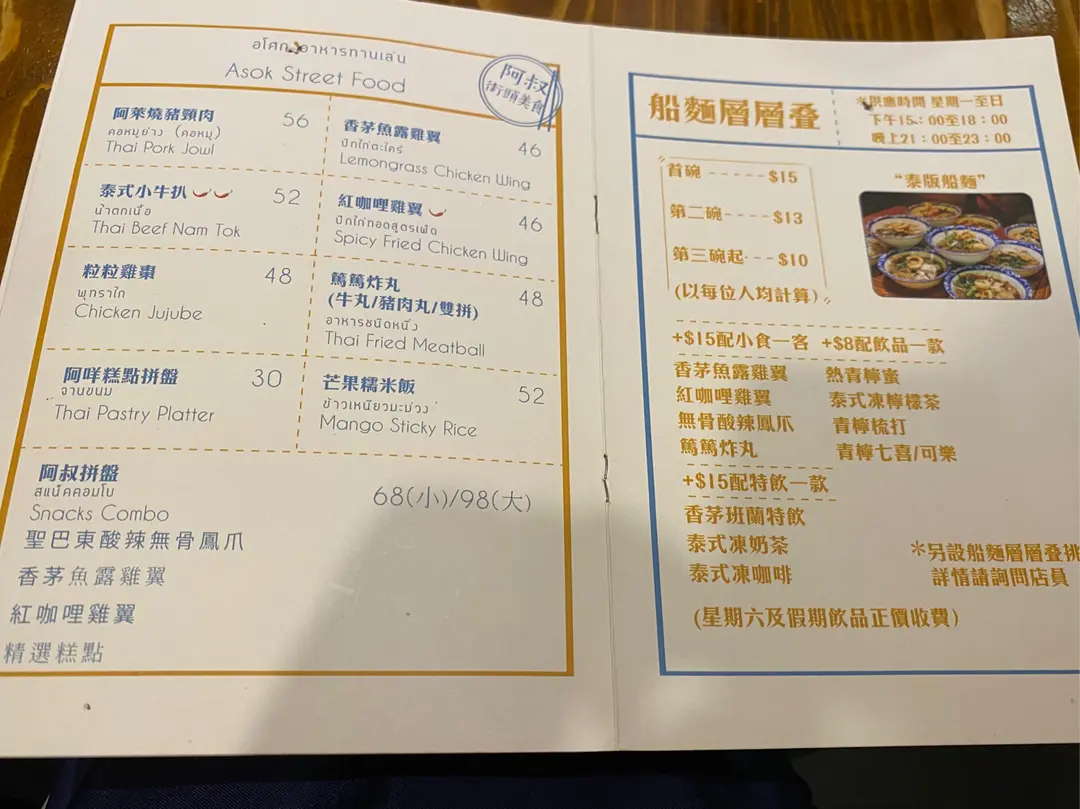 อโศก อาหารทานเล่น
Asok Street Food
阿叔
街頭美食
阿萊燒豬頸肉 56
คอหมูย่าง (คอหมู)
Thai Pork Jowl
香茅魚露雞翼 46
ปีกไก่ตะไคร้
Lemongrass Chicken Wing
泰式小牛扒 52
น้ำตกเนื้อ
Thai Beef Nam Tok
紅咖喱雞翼 46
ปีกไก่ทอดสูตรเผ็ด
Spicy Fried Chicken Wing
粒粒雞棗 48
พุทราไก่
Chicken Jujube
篤篤炸丸 48
(牛丸/豬肉丸/雙拼)
อาหารชนิดหนึ่ง
Thai Fried Meatball
阿咩糕點拼盤 30
จานขนม
Thai Pastry Platter
芒果糯米飯 52
ข้าวเหนียวมะม่วง
Mango Sticky Rice
阿叔拼盤 68(小)/98(大)
สแน็คคอมโบ
Snacks Combo
聖巴東酸辣無骨鳳爪
香茅魚露雞翼
紅咖哩雞翼
精選糕點
船麵層層叠
*供應時間 星期一至日
下午15:00至18:00
晚上21:00至23:00
首碗-----$15
第二碗----$13
第三碗起---$10
(以每位人均計算)
“泰版船麵”
+$15配小食一客 +$8配飲品一款
香茅魚露雞翼 熱青檸蜜
紅咖哩雞翼 泰式凍檸檬茶
無骨酸辣鳳爪 青檸梳打
篤篤炸丸 青檸七喜/可樂
+$15配特飲一款
香茅班蘭特飲
泰式凍奶茶
泰式凍咖啡
*另設船麵層層叠挑
詳情請詢問店員
(星期六及假期飲品正價收費)